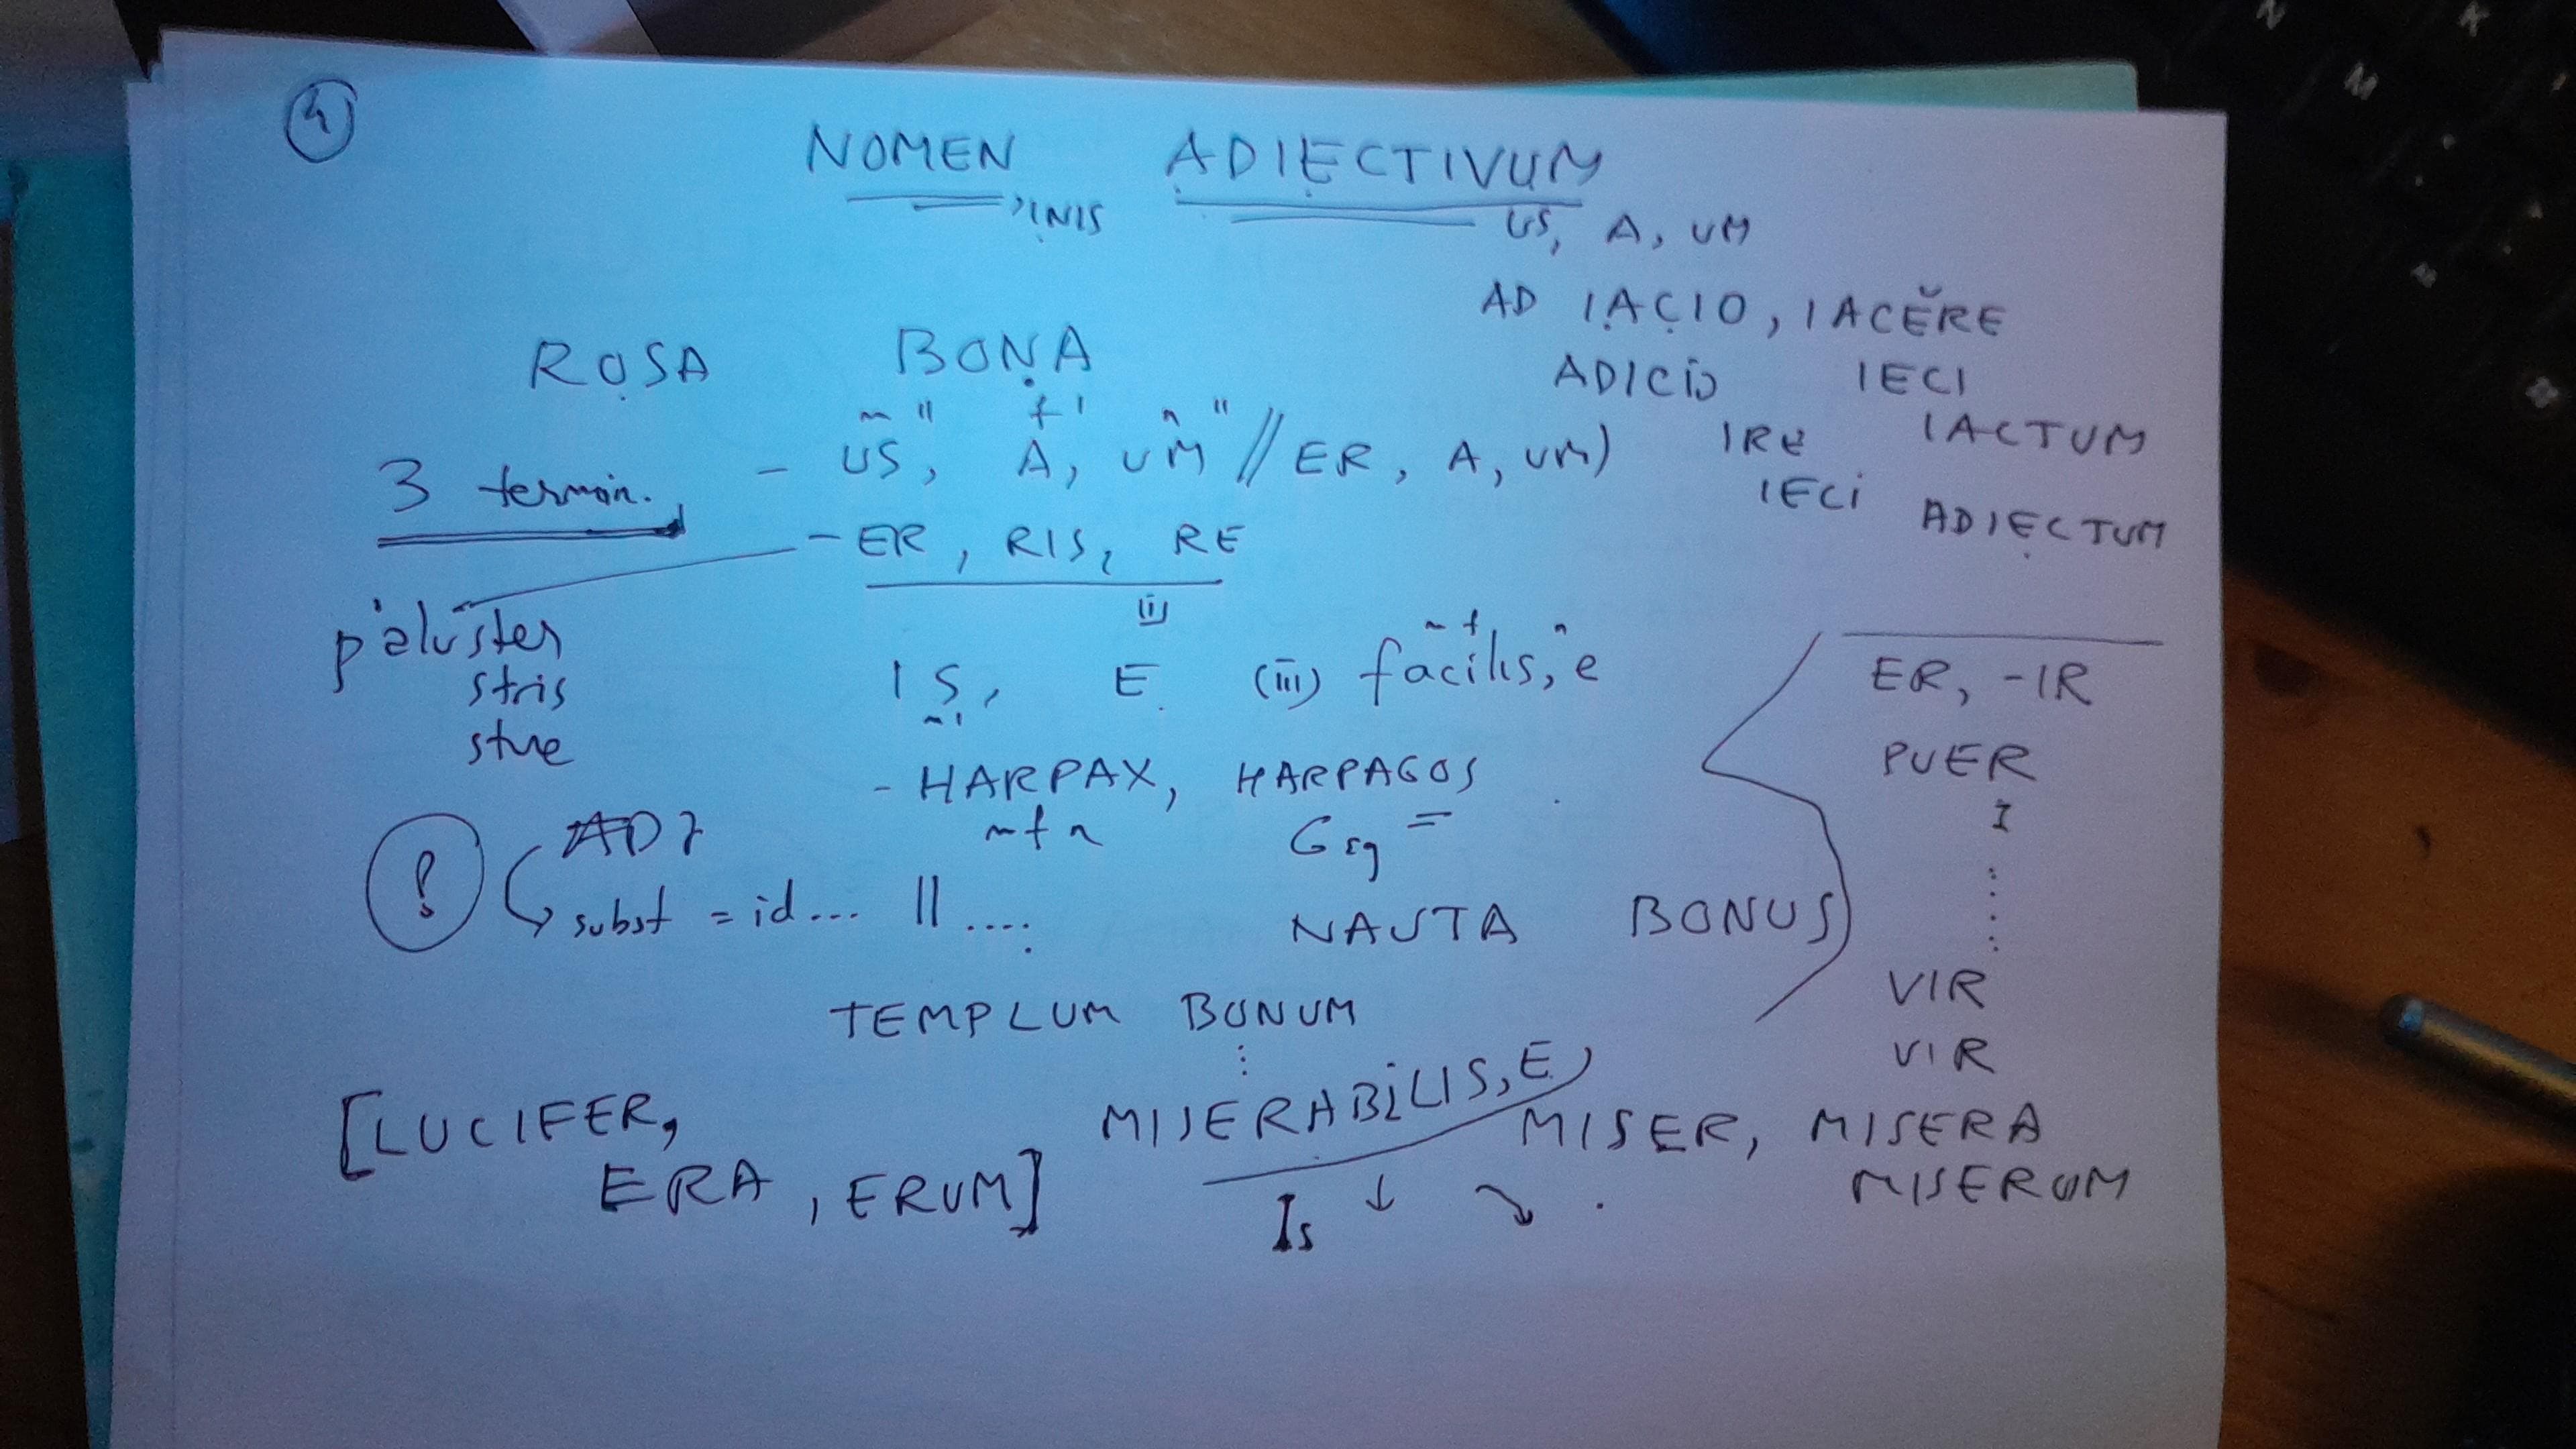 4
NOMEN ADIECTIVUM
, INIS US, A, UM
AD IACIO, IACĔRE
ROSA BONA
ADICIO IECI
m II f I n II
3 termin. - US, A, UM // ER, A, UM) IRE IACTUM
IECI ADIECTUM
- ER, RIS, RE
paluster
stris
stre
(III)
m f n
IS, E (III) facilis, e
m f
ER, -IR
PUER
I
.....
VIR
VIR
- HARPAX, HARPAGOS
m f n G sg =
! ADJ
subst = id... || ....
NAUTA BONUS
TEMPLUM BONUM
[LUCIFER,
ERA, ERUM]
MISERABILIS, E
MISER, MISERA
MISERUM
Is